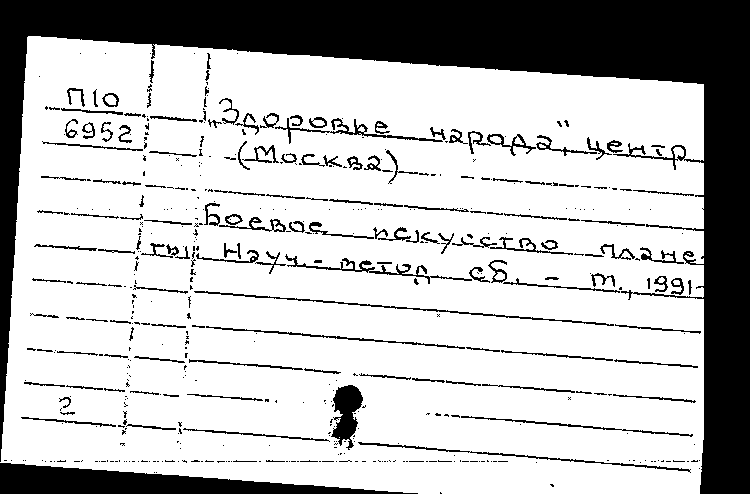 П10
6952
„Здоровье народа", центр
(Москва)
Боевое искусство плане-
ты. Науч.-метод сб. - М., 1991-
2